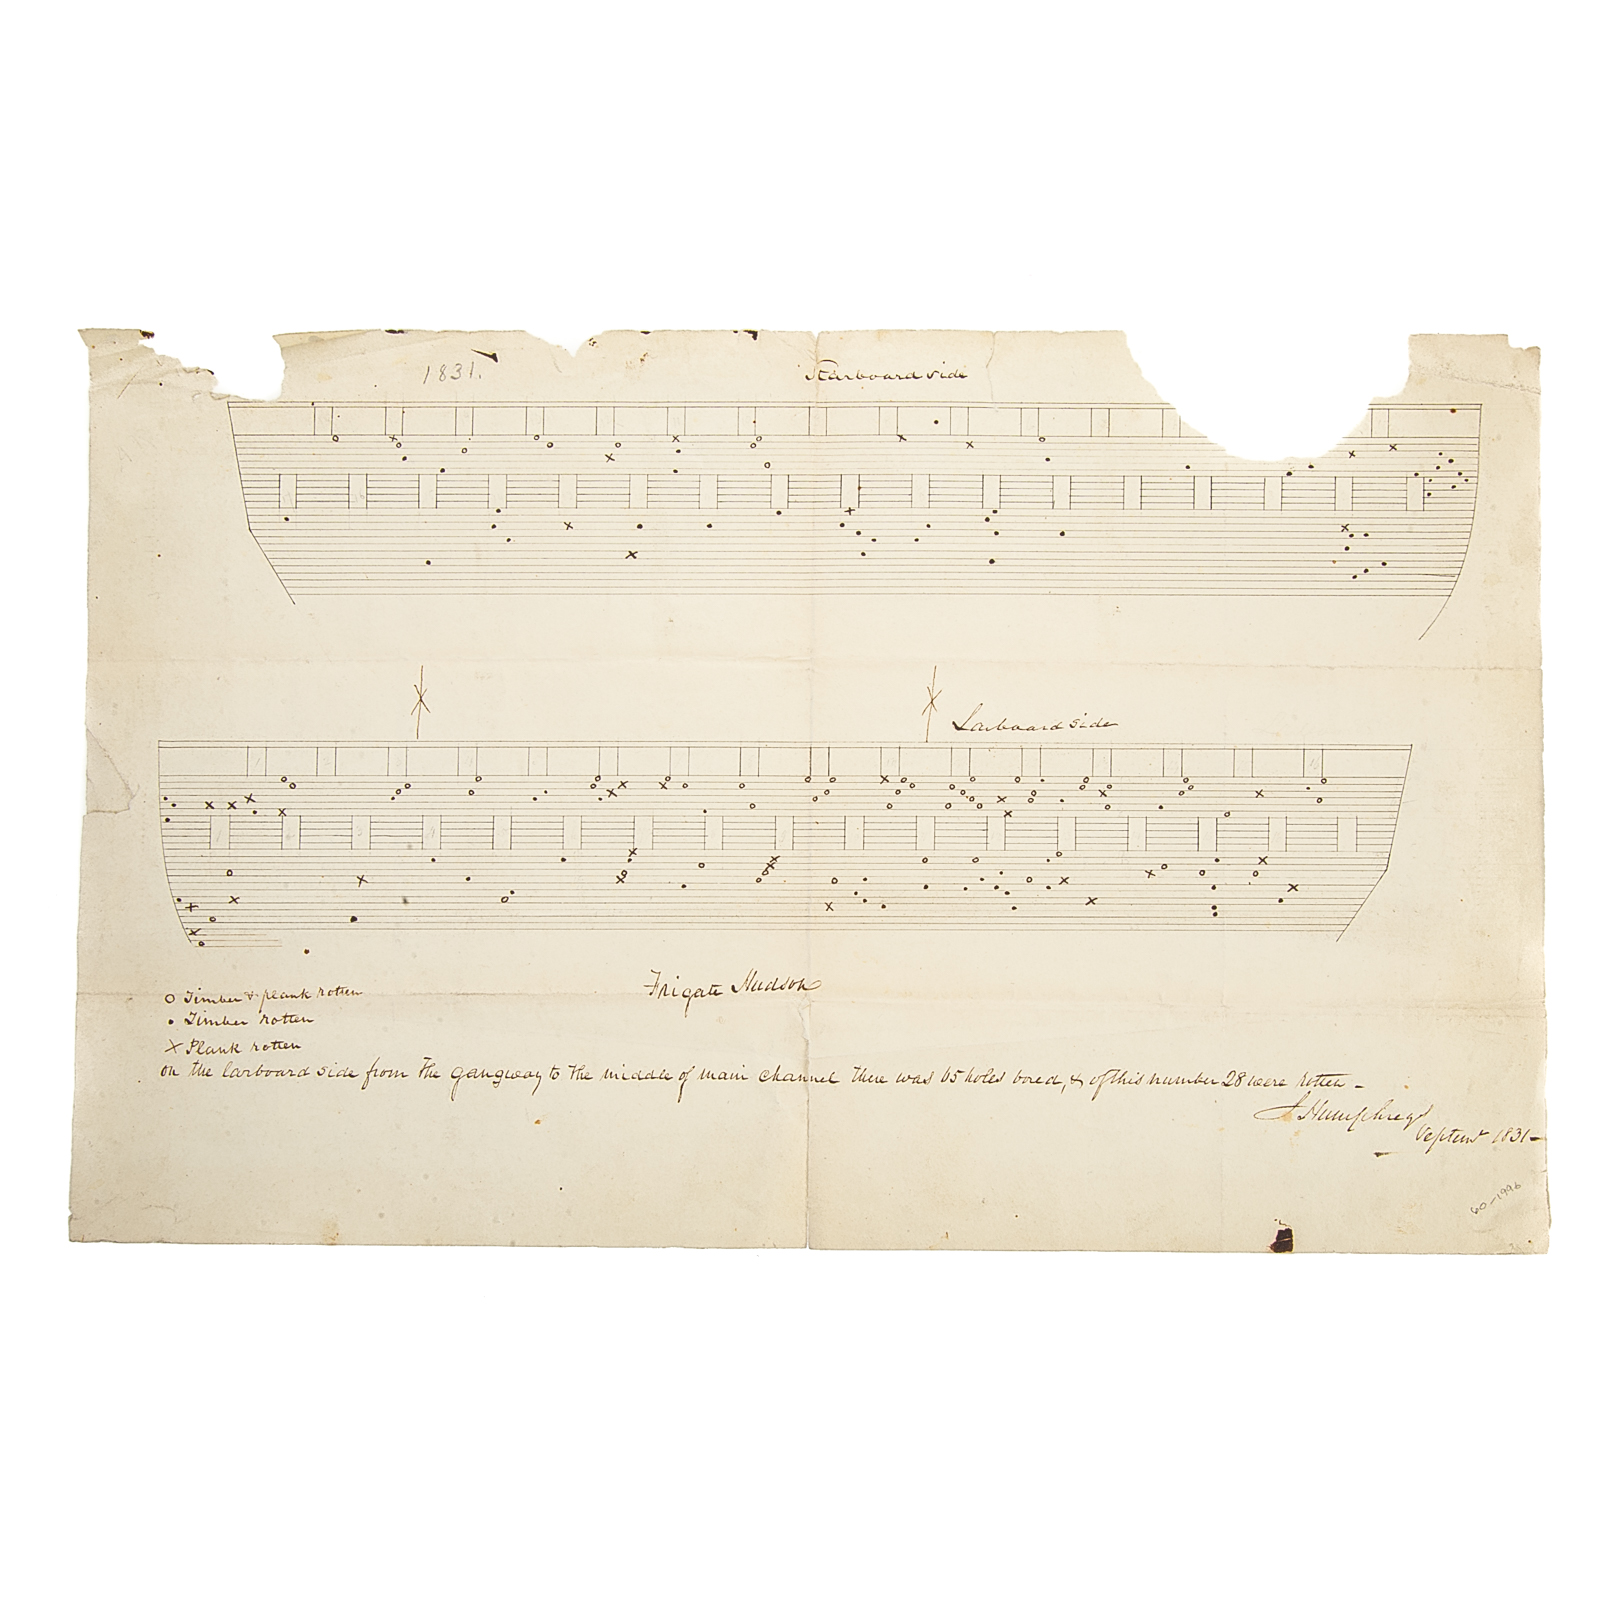 1831.
Starboard side
Larboard side
Frigate Hudson
o Timber & plank rotten
• Timber rotten
x Plank rotten
on the larboard side from the gangway to the middle of main channel there was 65 holes bored, & of this number 28 were rotten –
S Humphreys
1831 –
60-1996